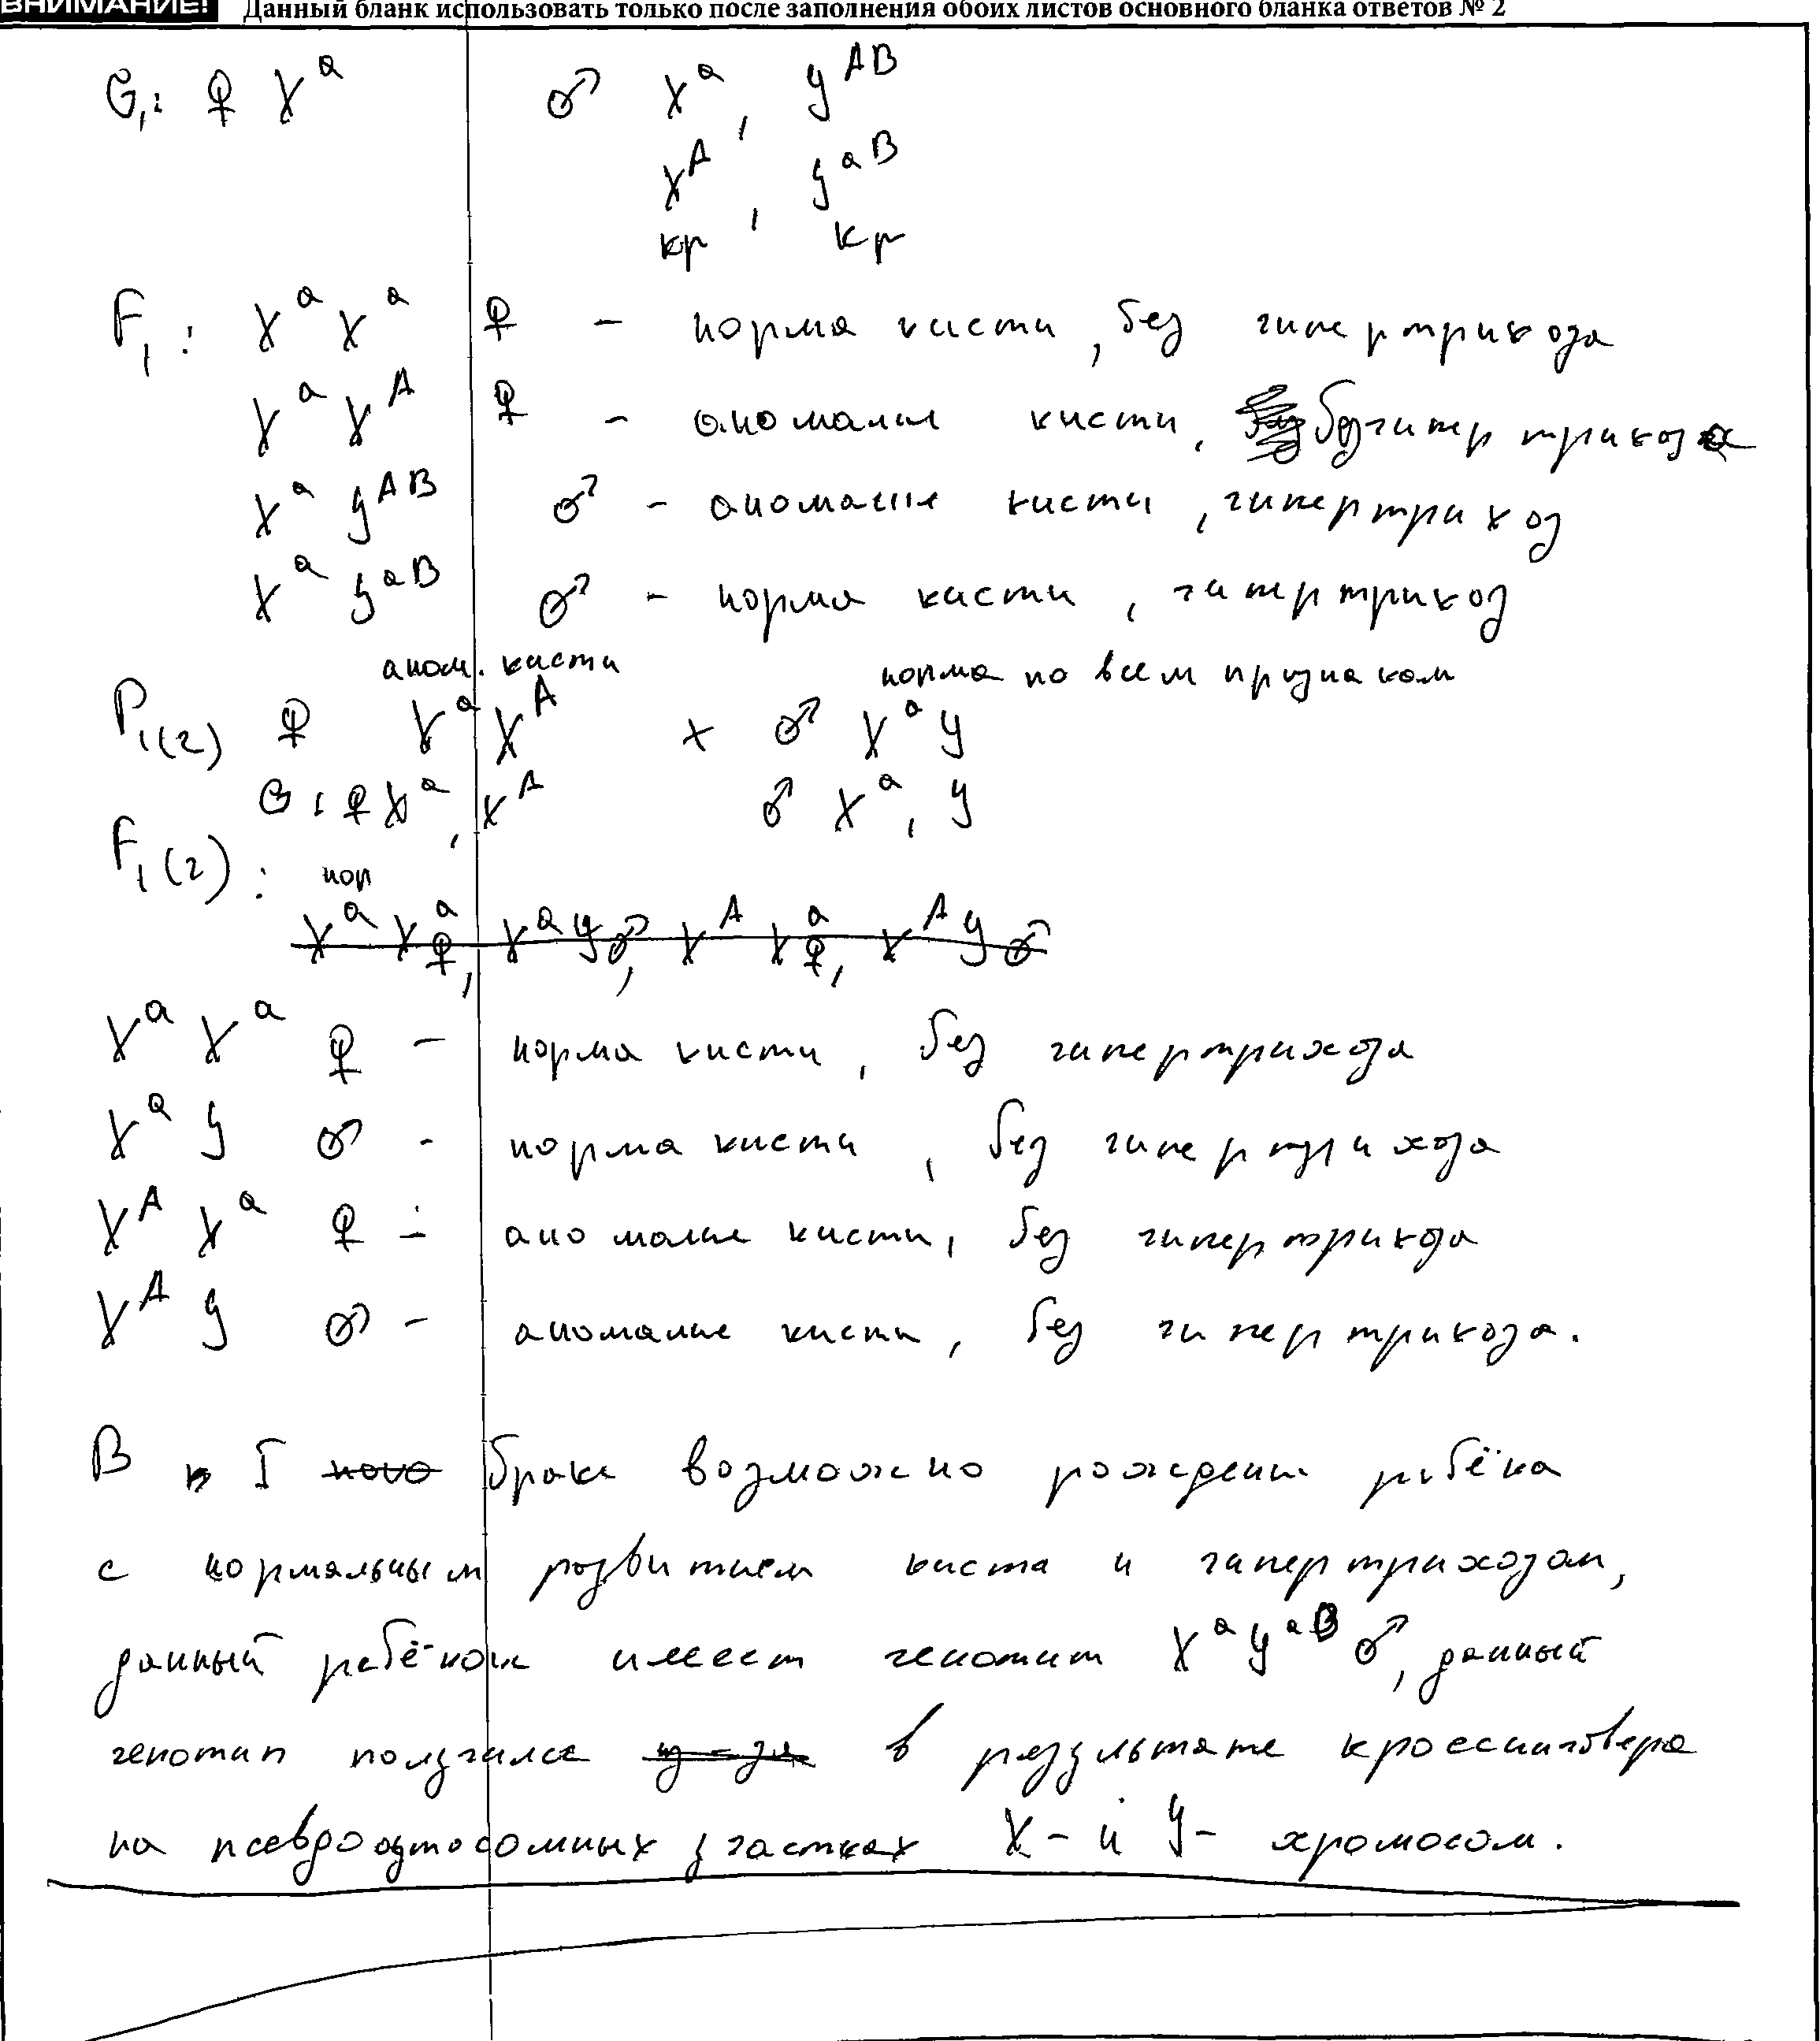 ВНИМАНИЕ! Данный бланк использовать только после заполнения обоих листов основного бланка ответов № 2
G₁: ♀ Xᵃ ♂ Xᵃ, yᴬᴮ
Xᴬ, yᵃᴮ
кр, кр
F₁: XᵃXᵃ ♀ – норма кисти, без гипертрихоза
XᵃXᴬ ♀ – аномалие кисти, без гипертрихоза
Xᵃyᴬᴮ ♂ – аномалие кисти, гипертрихоз
Xᵃyᵃᴮ ♂ – норма кисти, гипертрихоз
аном. кисти норма по всем признакам
P₁₍₂₎ ♀ XᵃXᴬ × ♂ Xᵃy
G: ♀ Xᵃ, Xᴬ ♂ Xᵃ, y
F₁(2): нор
XᵃXᵃ ♀, Xᵃy ♂, XᴬXᵃ ♀, Xᴬy ♂
XᵃXᵃ ♀ – норма кисти, без гипертрихоза
Xᵃy ♂ - норма кисти, без гипертрихоза
XᴬXᵃ ♀ – аномалие кисти, без гипертрихоза
Xᴬy ♂ – аномалие кисти, без гипертрихоза.
В I браке возможно рождение ребёнка
с нормальным развитием кисти и гипертрихозом,
данный ребёнок имеет генотип Xᵃyᵃᴮ ♂, данный
генотип получился в результате кроссинговера
на псевдоаутосомных участках X- и y- хромосом.